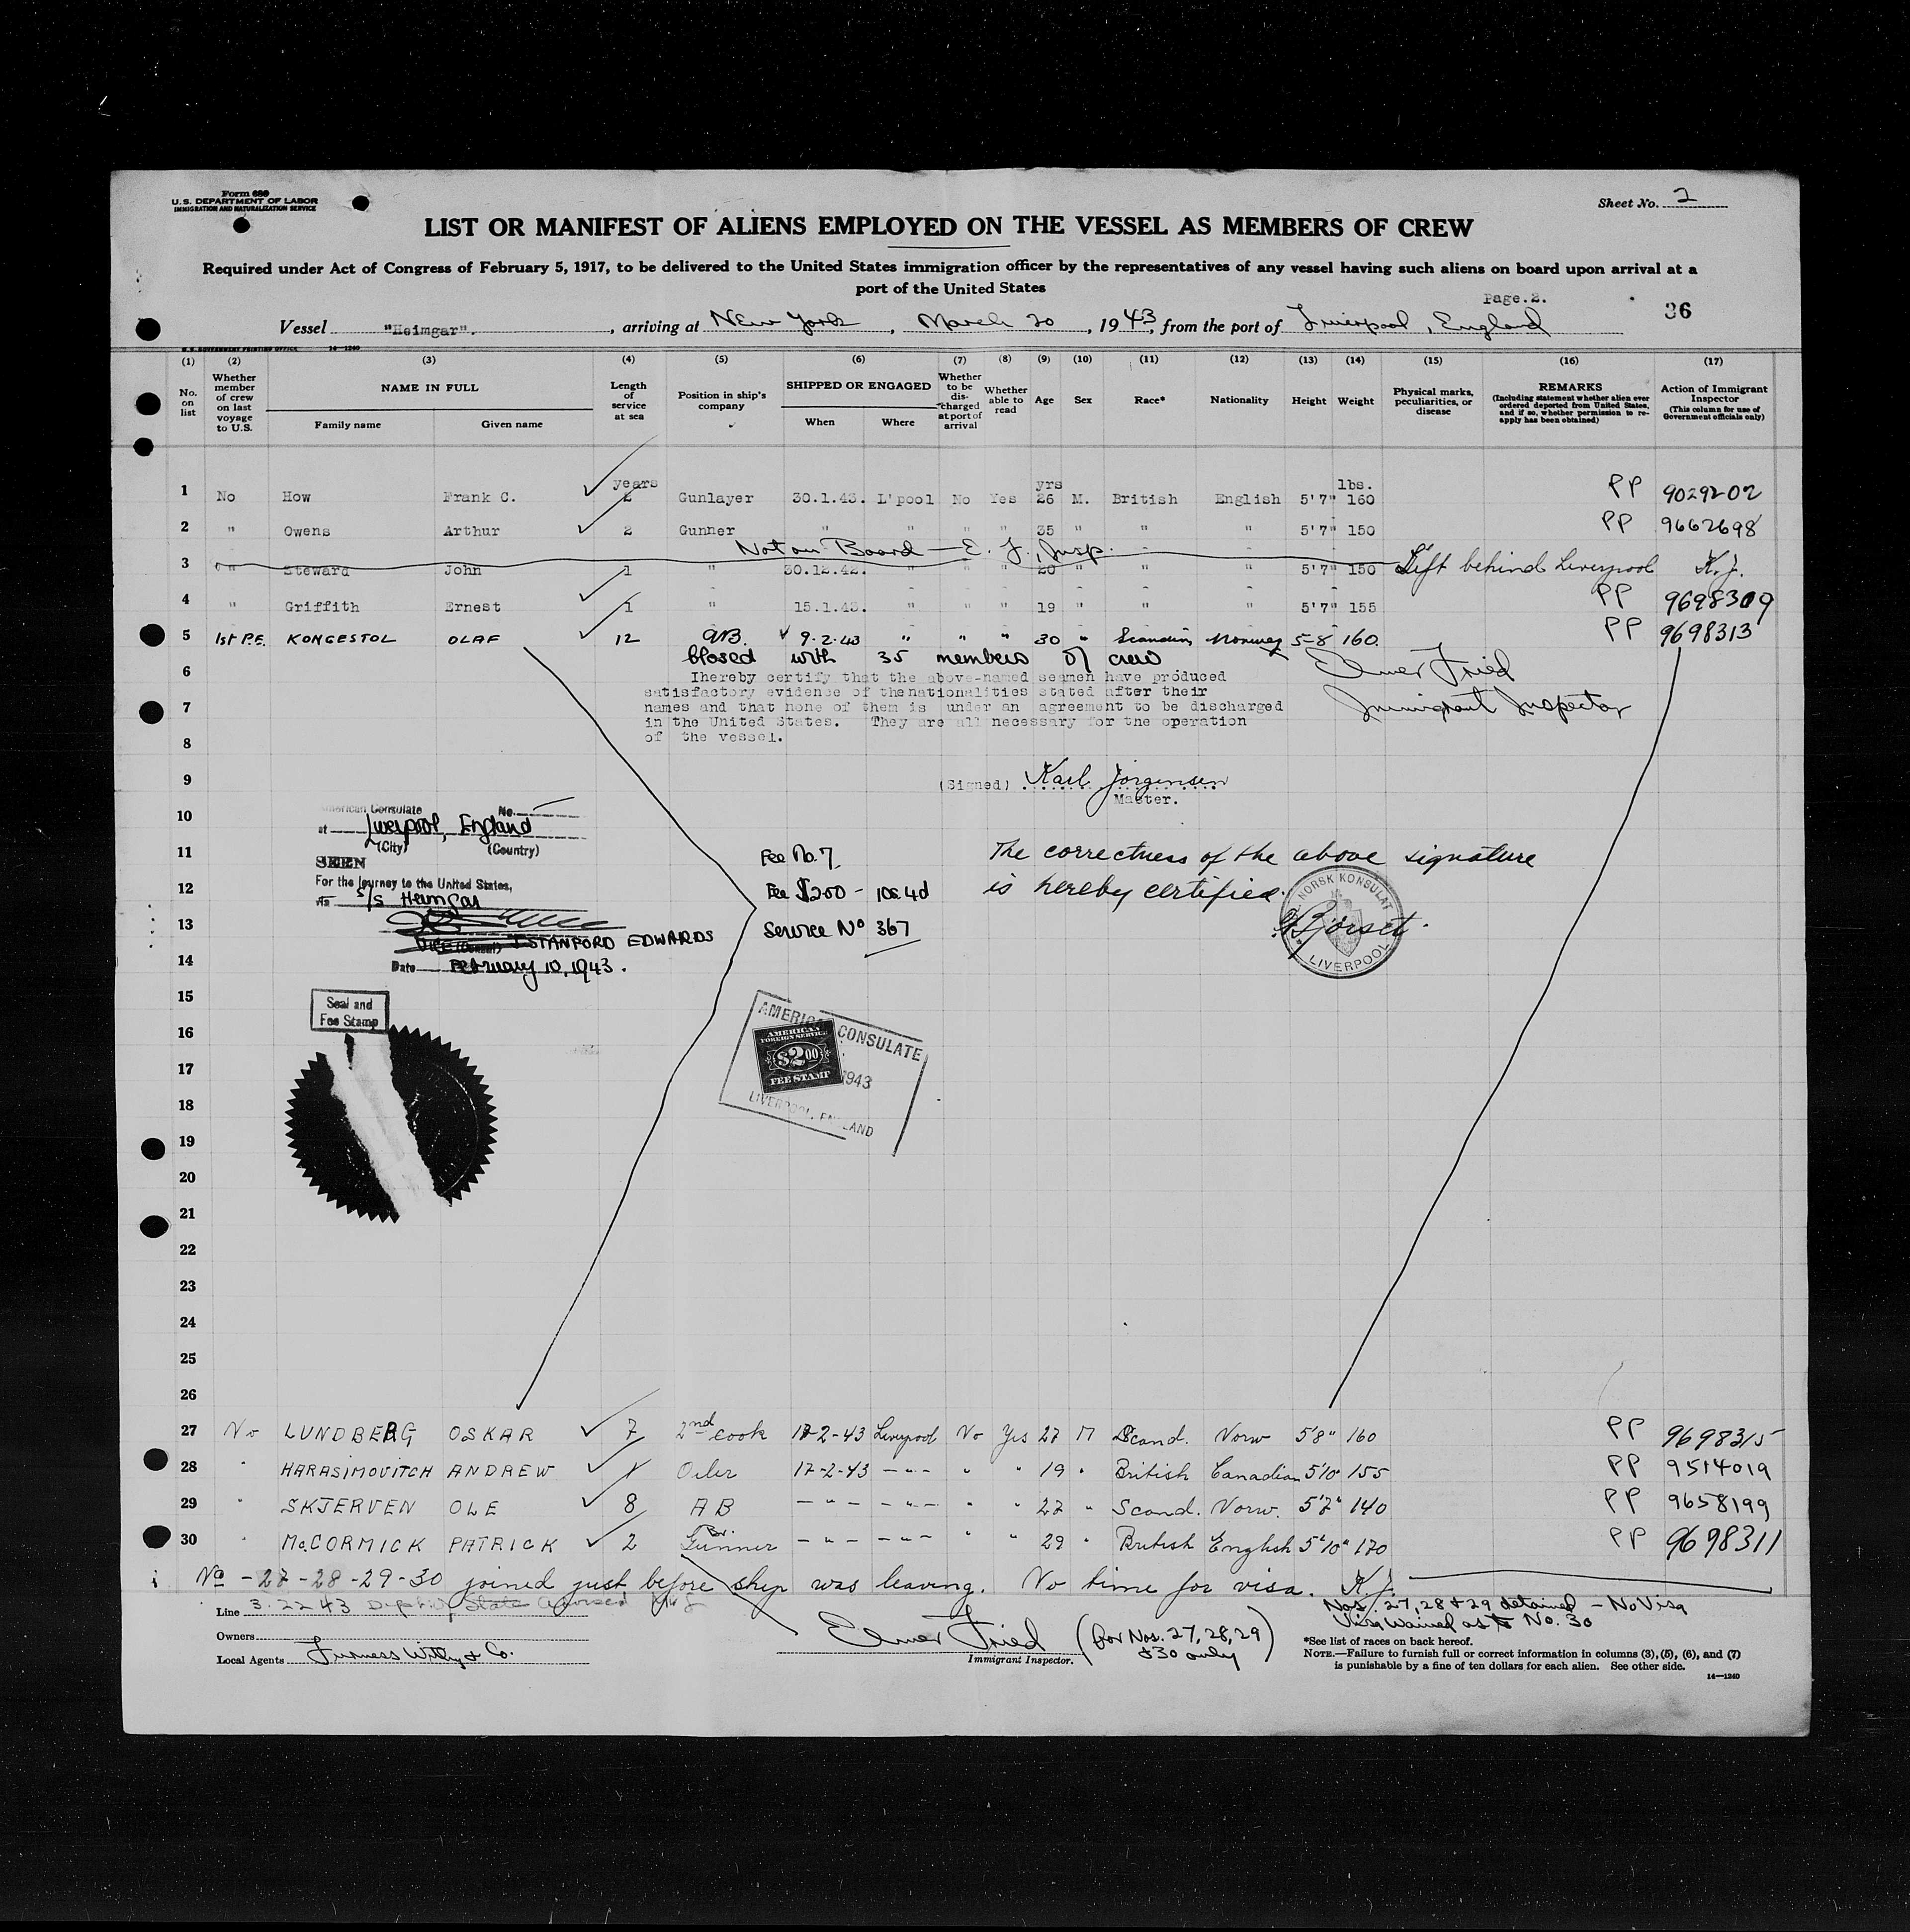 Form 680
U.S. DEPARTMENT OF LABOR
IMMIGRATION AND NATURALIZATION SERVICE
Sheet No. 2
LIST OR MANIFEST OF ALIENS EMPLOYED ON THE VESSEL AS MEMBERS OF CREW
Required under Act of Congress of February 5, 1917, to be delivered to the United States immigration officer by the representatives of any vessel having such aliens on board upon arrival at a
port of the United States
Page.2.
36
Vessel "Heimgar". , arriving at New York , March 20 , 1943, from the port of Liverpool, England
U.S. GOVERNMENT PRINTING OFFICE 14—1240
(1) (2) (3) (4) (5) (6) (7) (8) (9) (10) (11) (12) (13) (14) (15) (16) (17)
No. on list
Whether member of crew on last voyage to U.S.
NAME IN FULL
Family name Given name
Length of service at sea
Position in ship's company
SHIPPED OR ENGAGED
When Where
Whether to be discharged at port of arrival
Whether able to read
Age
Sex
Race*
Nationality
Height
Weight
Physical marks, peculiarities, or disease
REMARKS
(Including statement whether alien ever ordered deported from United States, and if so, whether permission to re-apply has been obtained)
Action of Immigrant Inspector
(This column for use of Government officials only)
years yrs lbs.
1 No How Frank C. 2 Gunlayer 30.1.43. L'pool No Yes 26 M. British English 5'7" 160 PP 9029202
2 " Owens Arthur 2 Gunner " " " " 35 " " " 5'7" 150 PP 9662698
Not on Board — E. F. Insp.
3 " Steward John 1 " 30.12.42. " " " 20 " " " 5'7" 150 Left behind Liverpool K.J.
4 " Griffith Ernest 1 " 15.1.43. " " " 19 " " " 5'7" 155 PP 9698309
5 1st P.E. KONGESTOL OLAF 12 AB. 9.2.43 " " " 30 " Scandin Norway 5-8 160. PP 9698313
Closed with 35 members of crew
Elmer Fried
Immigrant Inspector
6 Ihereby certify that the above-named seamen have produced
satisfactory evidence of the nationalities stated after their
7 names and that none of them is under an agreement to be discharged
in the United States. They are all necessary for the operation
8 of the vessel.
9 (Signed) Karl Jörgensen
Master.
10 American Consulate No.
at Liverpool, England
(City) (Country)
11 SEEN
For the journey to the United States,
12 via S/S Heimgar
13 STANFORD EDWARDS
14 Date February 10, 1943.
Fee No. 7
Fee $2.00 - 10s 4d
Service No 367
The correctness of the above signature
is hereby certified.
NORSK KONSULAT
LIVERPOOL
15
Seal and
Fee Stamp
16
17
18
19
20
21
22
23
24
25
26
AMERICAN CONSULATE
AMERICAN
FOREIGN SERVICE
$2.00
FEE STAMP
1943
LIVERPOOL, ENGLAND
27 No LUNDBERG OSKAR 7 2nd cook 17-2-43 Liverpool No Yes 27 M Scand. Norw 5'8" 160 PP 9698315
28 " HARASIMOVITCH ANDREW 1 Oiler 17-2-43 — " — " " 19 " British Canadian 5'10" 155 PP 9514019
29 " SKJERVEN OLE 8 AB — " — — " — " " 27 " Scand. Norw. 5'7" 140 PP 9658199
30 " McCORMICK PATRICK 2 Br. Gunner — " — — " — " " 29 " British English 5'10" 170 PP 9698311
No -27-28-29-30 joined just before ship was leaving. No time for visa. K.J.
Nos. 27, 28 & 29 detained - No Visa
Visa Waived as to No. 30
Line 3.22 43
Owners
Local Agents Furness Withy & Co.
Elmer Fried (for Nos. 27, 28, 29
& 30 only)
Immigrant Inspector.
*See list of races on back hereof.
NOTE.—Failure to furnish full or correct information in columns (3), (5), (6), and (7)
is punishable by a fine of ten dollars for each alien. See other side.
14—1240